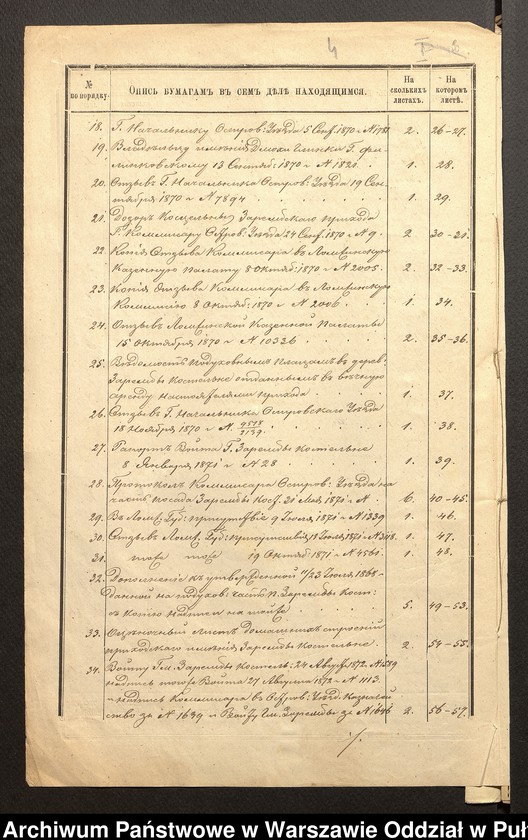 4
№
по порядку.
Опись бумагамъ въ семъ дѣлѣ находящимся.
На
сколькихъ
листахъ.
На
которомъ
листѣ.
18. Г. Начальнику Остров: Уѣзда 5 Сент. 1870 г. № 2. 26-27.
19. Владѣльцу имѣнія Г.
13 Сентяб: 1870 г. № 1820. 1. 28.
20. Отзывъ Г. Начальника Остров: Уѣзда 19 Сен-
тября 1870 г. № 7894 1. 29.
21. Дозоръ Косцельный Зарембскаго прихода
Г. Коммисару Остров: Уѣзда 24 Сент. 1870 г. № 9. 2 30-31.
22. Копія Отзыва Коммисара въ Ломжинскую
Казенную Палату 8 Октяб: 1870 г. № 2005. 2. 32-33.
23. Копія Отзыва Коммисара въ Ломжинскую
Коммисію 8 Октяб: 1870 г. № 2006. 1. 34.
24. Отзывъ Ломжинской Казенной Палаты
15 Октября 1870 г. № 10336 2. 35-36.
25. Вѣдомость подуховнымъ плацамъ въ дерев:
Заремbы Костельне отданнымъ въ вѣчную
аренду Настоятелями прихода 1. 37.
26. Отзывъ Г. Начальника Островскаго Уѣзда
18 Ноября 1870 г. №. 1. 38.
27. Рапортъ Войта Г. Зарембы Костельне
8 Января 1871 г. № 28 1. 39.
28. Протоколъ Коммисара Остров: Уѣзда на
часть посада Зарембы Кост. 21 Мая 1871 г. №. 6. 40-45.
29. Въ Ломж. Губ: присутствіе 9 Іюля 1871 г. № 1339 1. 46.
30. Отзывъ Ломж. Губ: присутствія 19 Іюля 1871 г. № 1. 47.
31. тоже тоже 19 Октяб: 1871 г. № 4561. 1. 48.
32. Дополненіе къ утвержденной 11/23 Іюля 1868
Данной на подухов: часть п. Зарембы Кост:
съ копію надписи на тоже 5. 49-53.
33. Оцѣночный листъ домашнихъ строеній
приходскаго имѣнія Зарембы Костельне. 2. 54-55.
34. Войту Гм. Зарембы Костель: 24 Август. 1872 г. №
надпись тоже Войта 27 Августа 1872 г. № 1113.
и надпись Коммисара въ Остров: Уѣзд. Казначей-
ство за № 1639 и Войту Гм. Зарембы за № 1646 2. 56-57.
Archiwum Państwowe w Warszawie Oddział w Puł